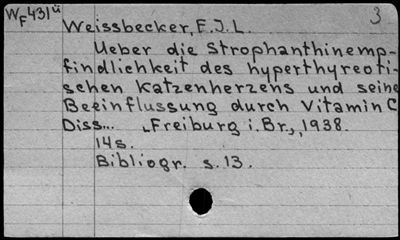 WF431ü
3
Weissbecker, E.J.L.
Ueber die Strophanthinemp-
findlichkeit des hyperthyreoti-
schen Katzenherzens und seine
Beeinflussung durch Vitamin C
Diss... Freiburg i. Br., 1938.
14 s.
Bibliogr. s. 13.